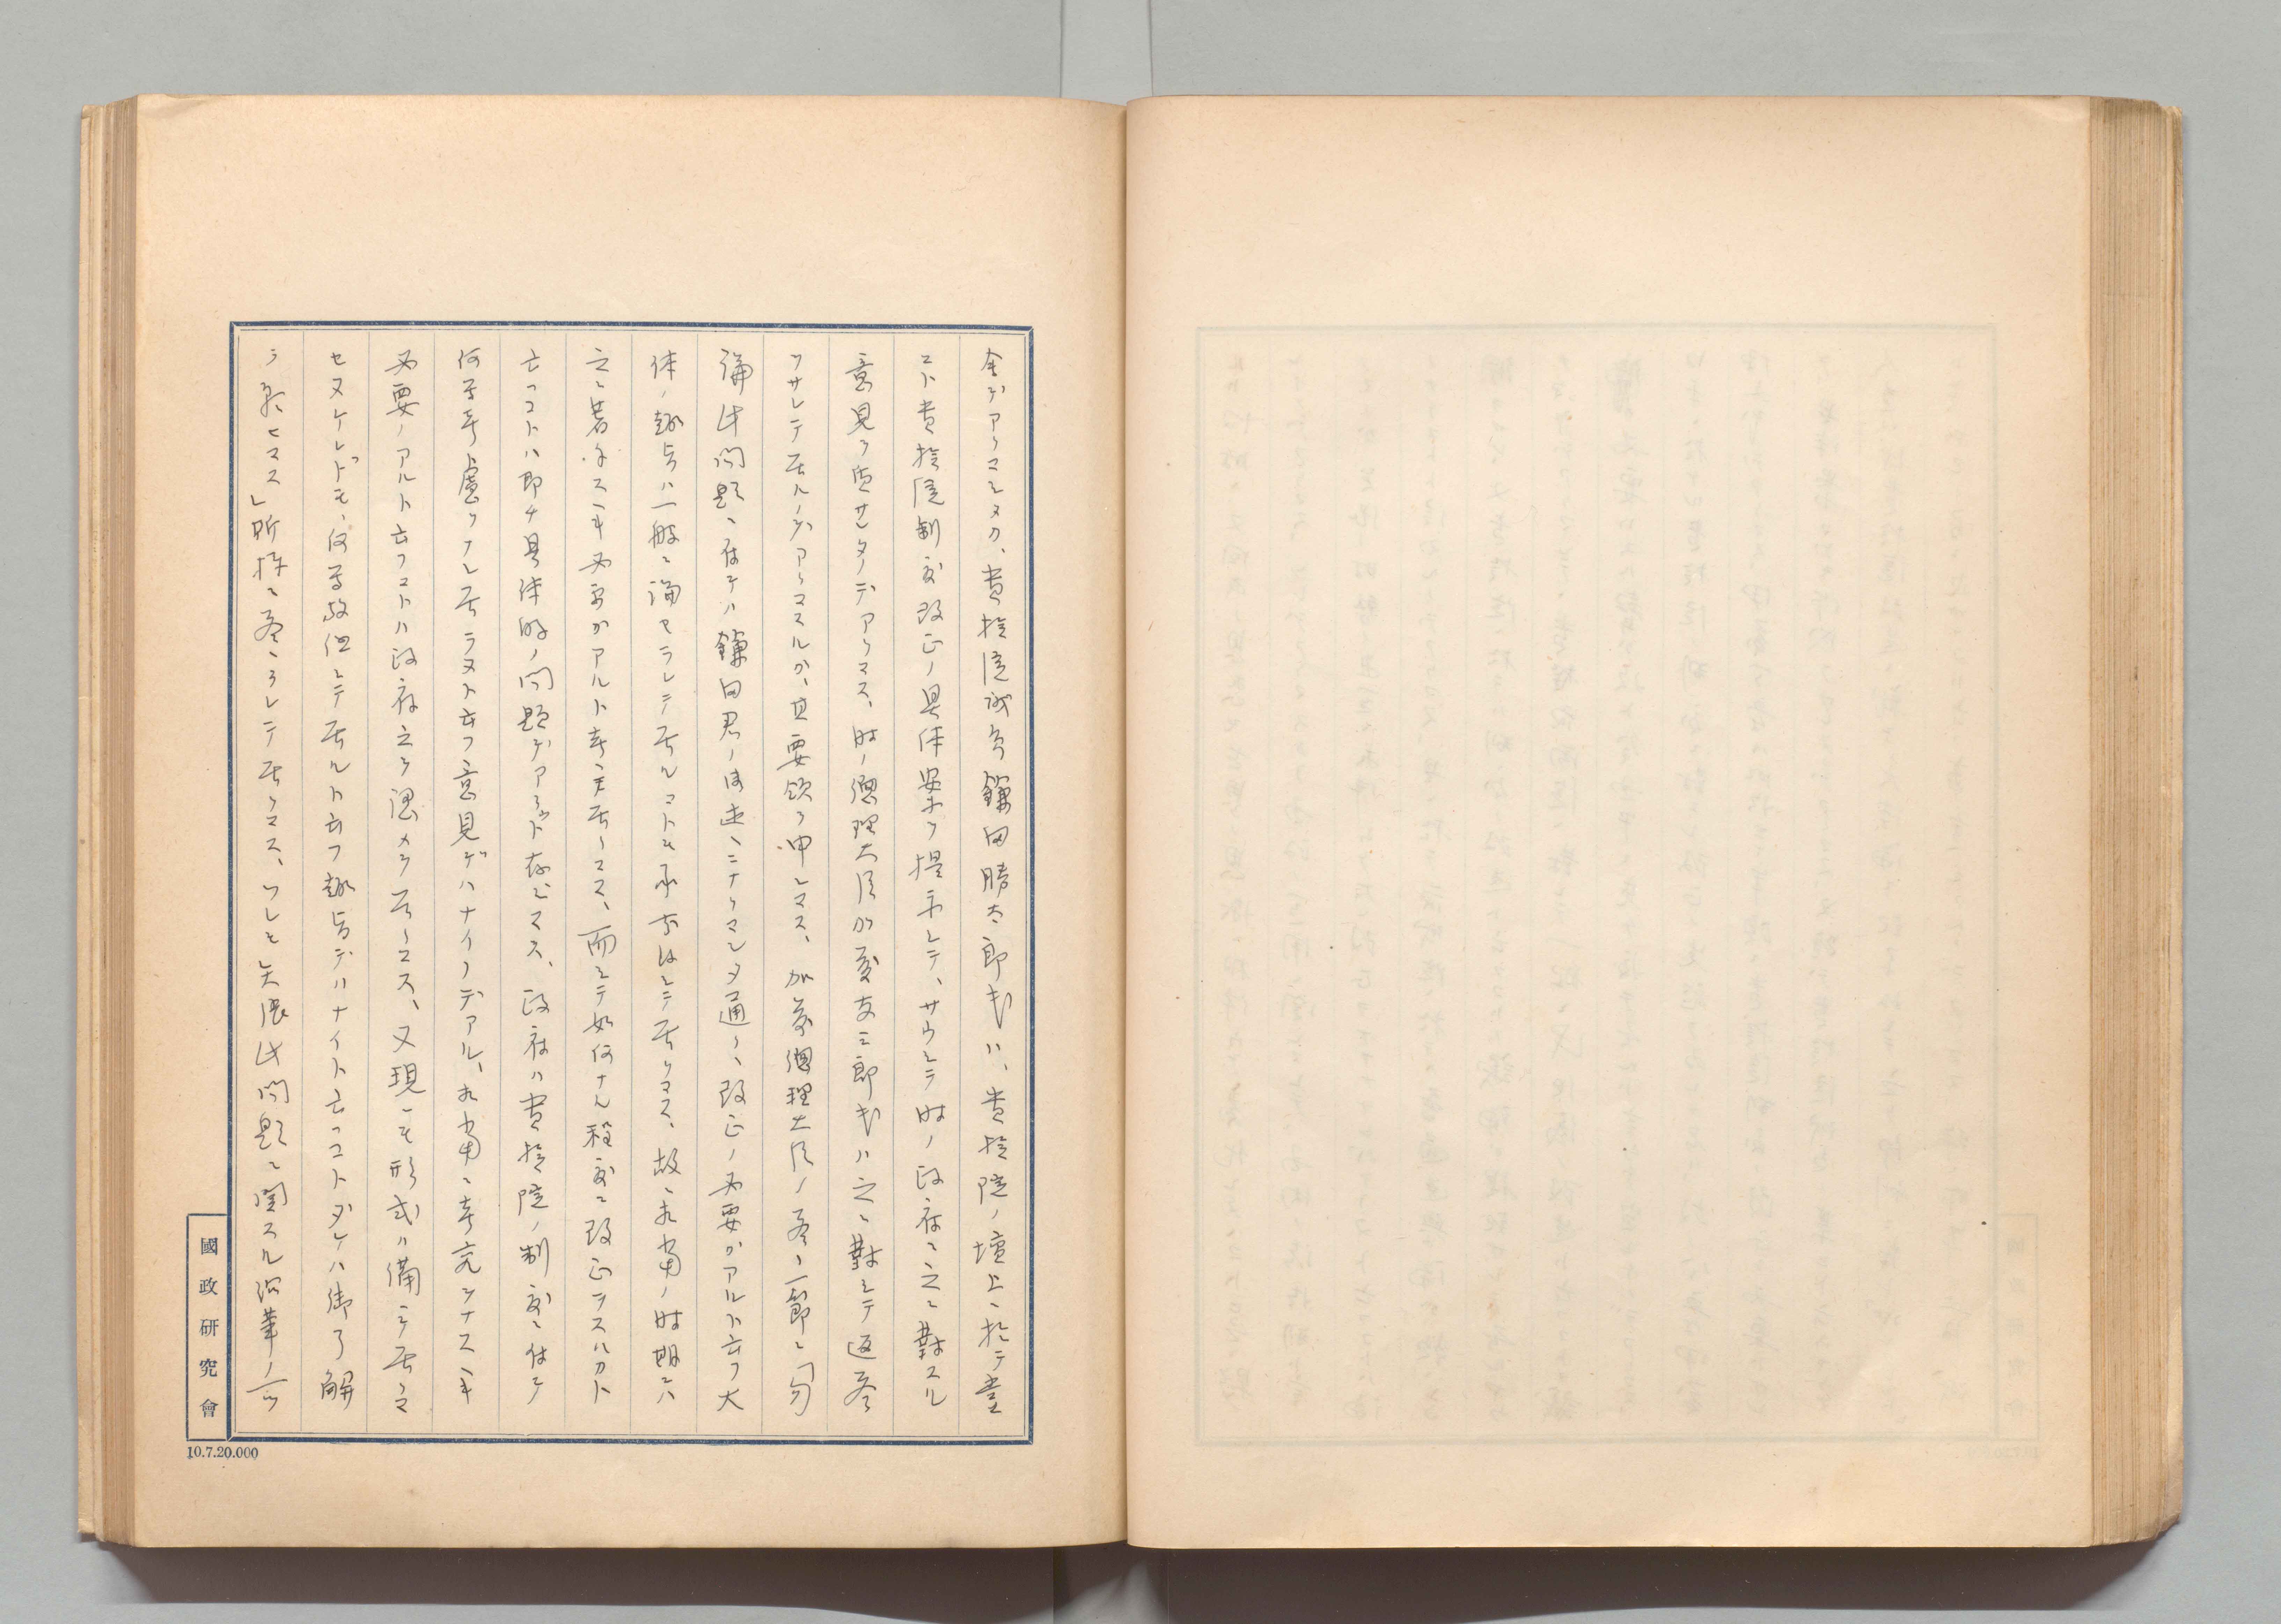 会デアリマシタカ、貴族院議員鎌田勝太郎氏ハ、貴族院ノ壇上ニ於テ堂
々ト貴族院制度改正ノ具体案ヲ提示シテ、サウシテ時ノ政府ニ之ニ対スル
意見ヲ質サレタノデアリマス、時ノ總理大臣加藤友三郎氏ハ之ニ對シテ返答
ヲサレテ居ルノデアリマスルカ、其要領ヲ申シマス、加藤總理大臣ノ答ノ一節ニ「勿
論此問題ニ付テハ鎌田君ノ御述ニナリマシタ通リ、改正ノ必要カアルト云フ大
体ノ趣旨ハ一般ニ論セラレテ居ルコトモ承知致シテ居リマス、故ニ相當ノ時期ニハ
之ニ着手スヘキ必要カアルト考ヘテ居リマス、而シテ如何ナル程度ニ改正ヲスルカト
云フコトハ即チ具体的ノ問題デアラウト存ジマス、政府ハ貴族院ノ制度ニ付テ
何等考慮ヲナシ居ラヌト云フ意見デハナイノデアル、相當ニ考究ヲナスヘキ
必要ノアルト云フコトハ政府之ヲ認メテ居リマス、又現ニモ形式ハ備ヘテ居リマ
セヌケレドモ、何等放任シテ居ルト云フ趣旨デハナイト云フコトダケハ御了解
ヲ願ヒマス」斯様ニ答ヘラレテ居リマス、ソレモ矢張此問題ニ関スル沿革ノ一ツ
國政研究會
10.7.20.000